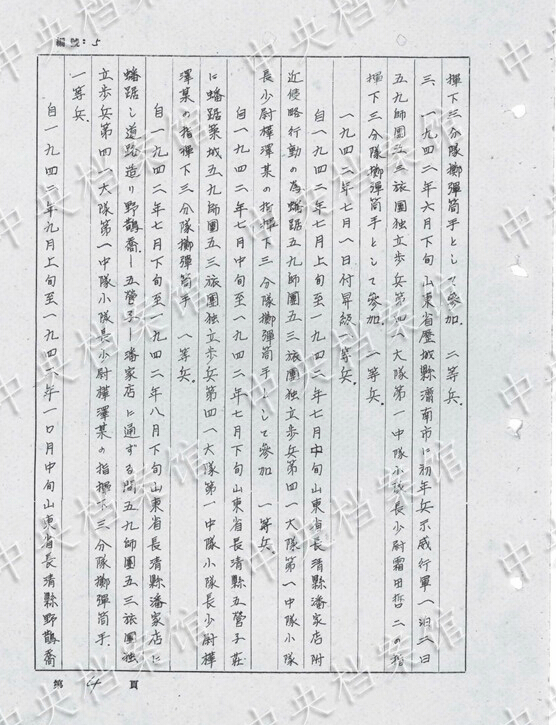 編號：5
揮下三分隊擲彈筒手として參加．二等兵．
三、一九四二年六月下旬山東省歷城縣濟南市に初年兵示威行軍一泊二日
五九師團五三旅團獨立步兵第四一大隊第一中隊小隊長少尉霜田哲二の指
揮下三分隊擲彈筒手として參加．一等兵．
一九四二年七月一日付昇級一等兵．
自一九四二年七月上旬至一九四二年七月中旬山東省長清縣潘家店附
近侵略行動の為蟠踞五九師團五三旅團独立步兵第四一大隊第一中隊小隊
長少尉樺澤某の指揮下三分隊擲彈筒手として參加　一等兵．
自一九四二年七月中旬至一九四二年七月下旬山東省長清縣五營子莊
に蟠踞築城五九師團五三旅團独立步兵第四一大隊第一中隊小隊長少尉樺
澤某の指揮下三分隊擲彈筒手　一等兵．
自一九四二年七月下旬至一九四二年八月下旬山東省長清縣潘家店に
蟠踞し道路造り野鵲喬―五營子―潘家店に通ずる間五九師團五三旅團独
立步兵第四一大隊第一中隊小隊長少尉樺澤某の指揮下三分隊擲彈筒手．
一等兵．
自一九四二年九月上旬至一九四二年一〇月中旬山東省長清縣野鵲喬
第 4 頁
中央档案馆